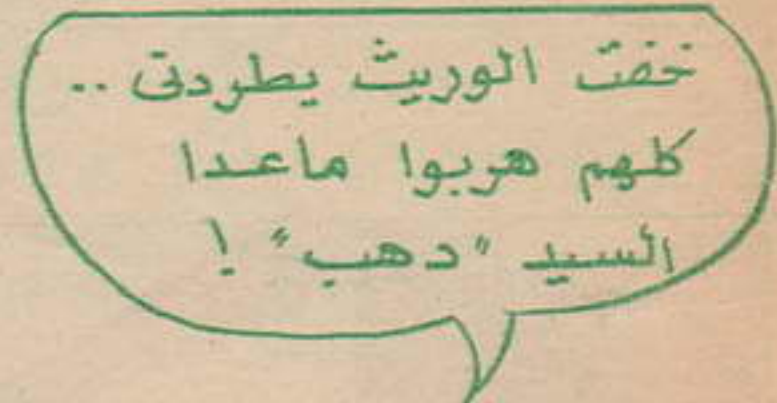 خفت الوريث يطردنى ..
كلهم هربوا ماعدا
السيد "دهب" !